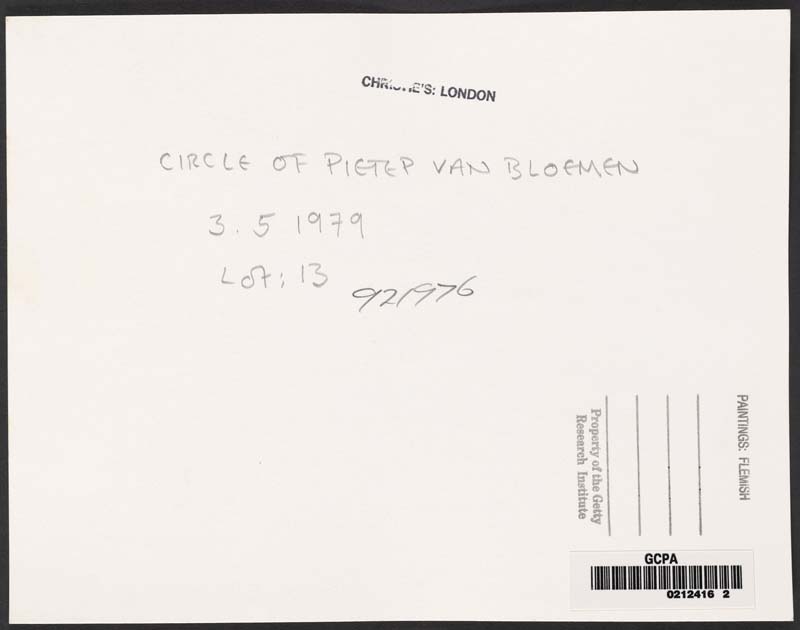 CHRISTIE'S: LONDON
CIRCLE OF PIETER VAN BLOEMEN
3.5 1979
Lot: 13
921976
PAINTINGS: FLEMISH
Property of the Getty
Research Institute
GCPA
0212416 2